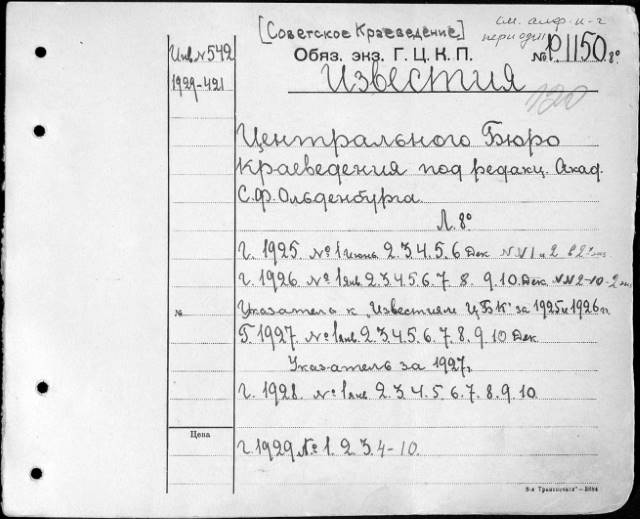 [Советское Краеведение]
см. алф. и-г
периодич
Обяз. экз. Г. Ц. К. П.
№ Р1150 8º
Инв № 542
1929-421
Известия
120
Центрального Бюро
Краеведения под редакц. Акад.
С.Ф. Ольденбурга.
Л. 8º
г. 1925 № 1 июнь 2.3.4.5.6 Дек № VI и 2 в 2х
г. 1926 № 1 янв. 2.3.4.5.6.7. 8. 9.10. Дек. №№ 2-10-2
№
Указатель к "Известиям ЦБК" за 1925 и 1926 г
Г. 1927 № 1 янв. 2.3.4.5.6.7.8.9.10 Дек
Указатель за 1927 г
г. 1928. № 1 янв 2.3.4.5.6.7.8.9.10
Цена
г. 1929 № 1. 2 3. 4-10.